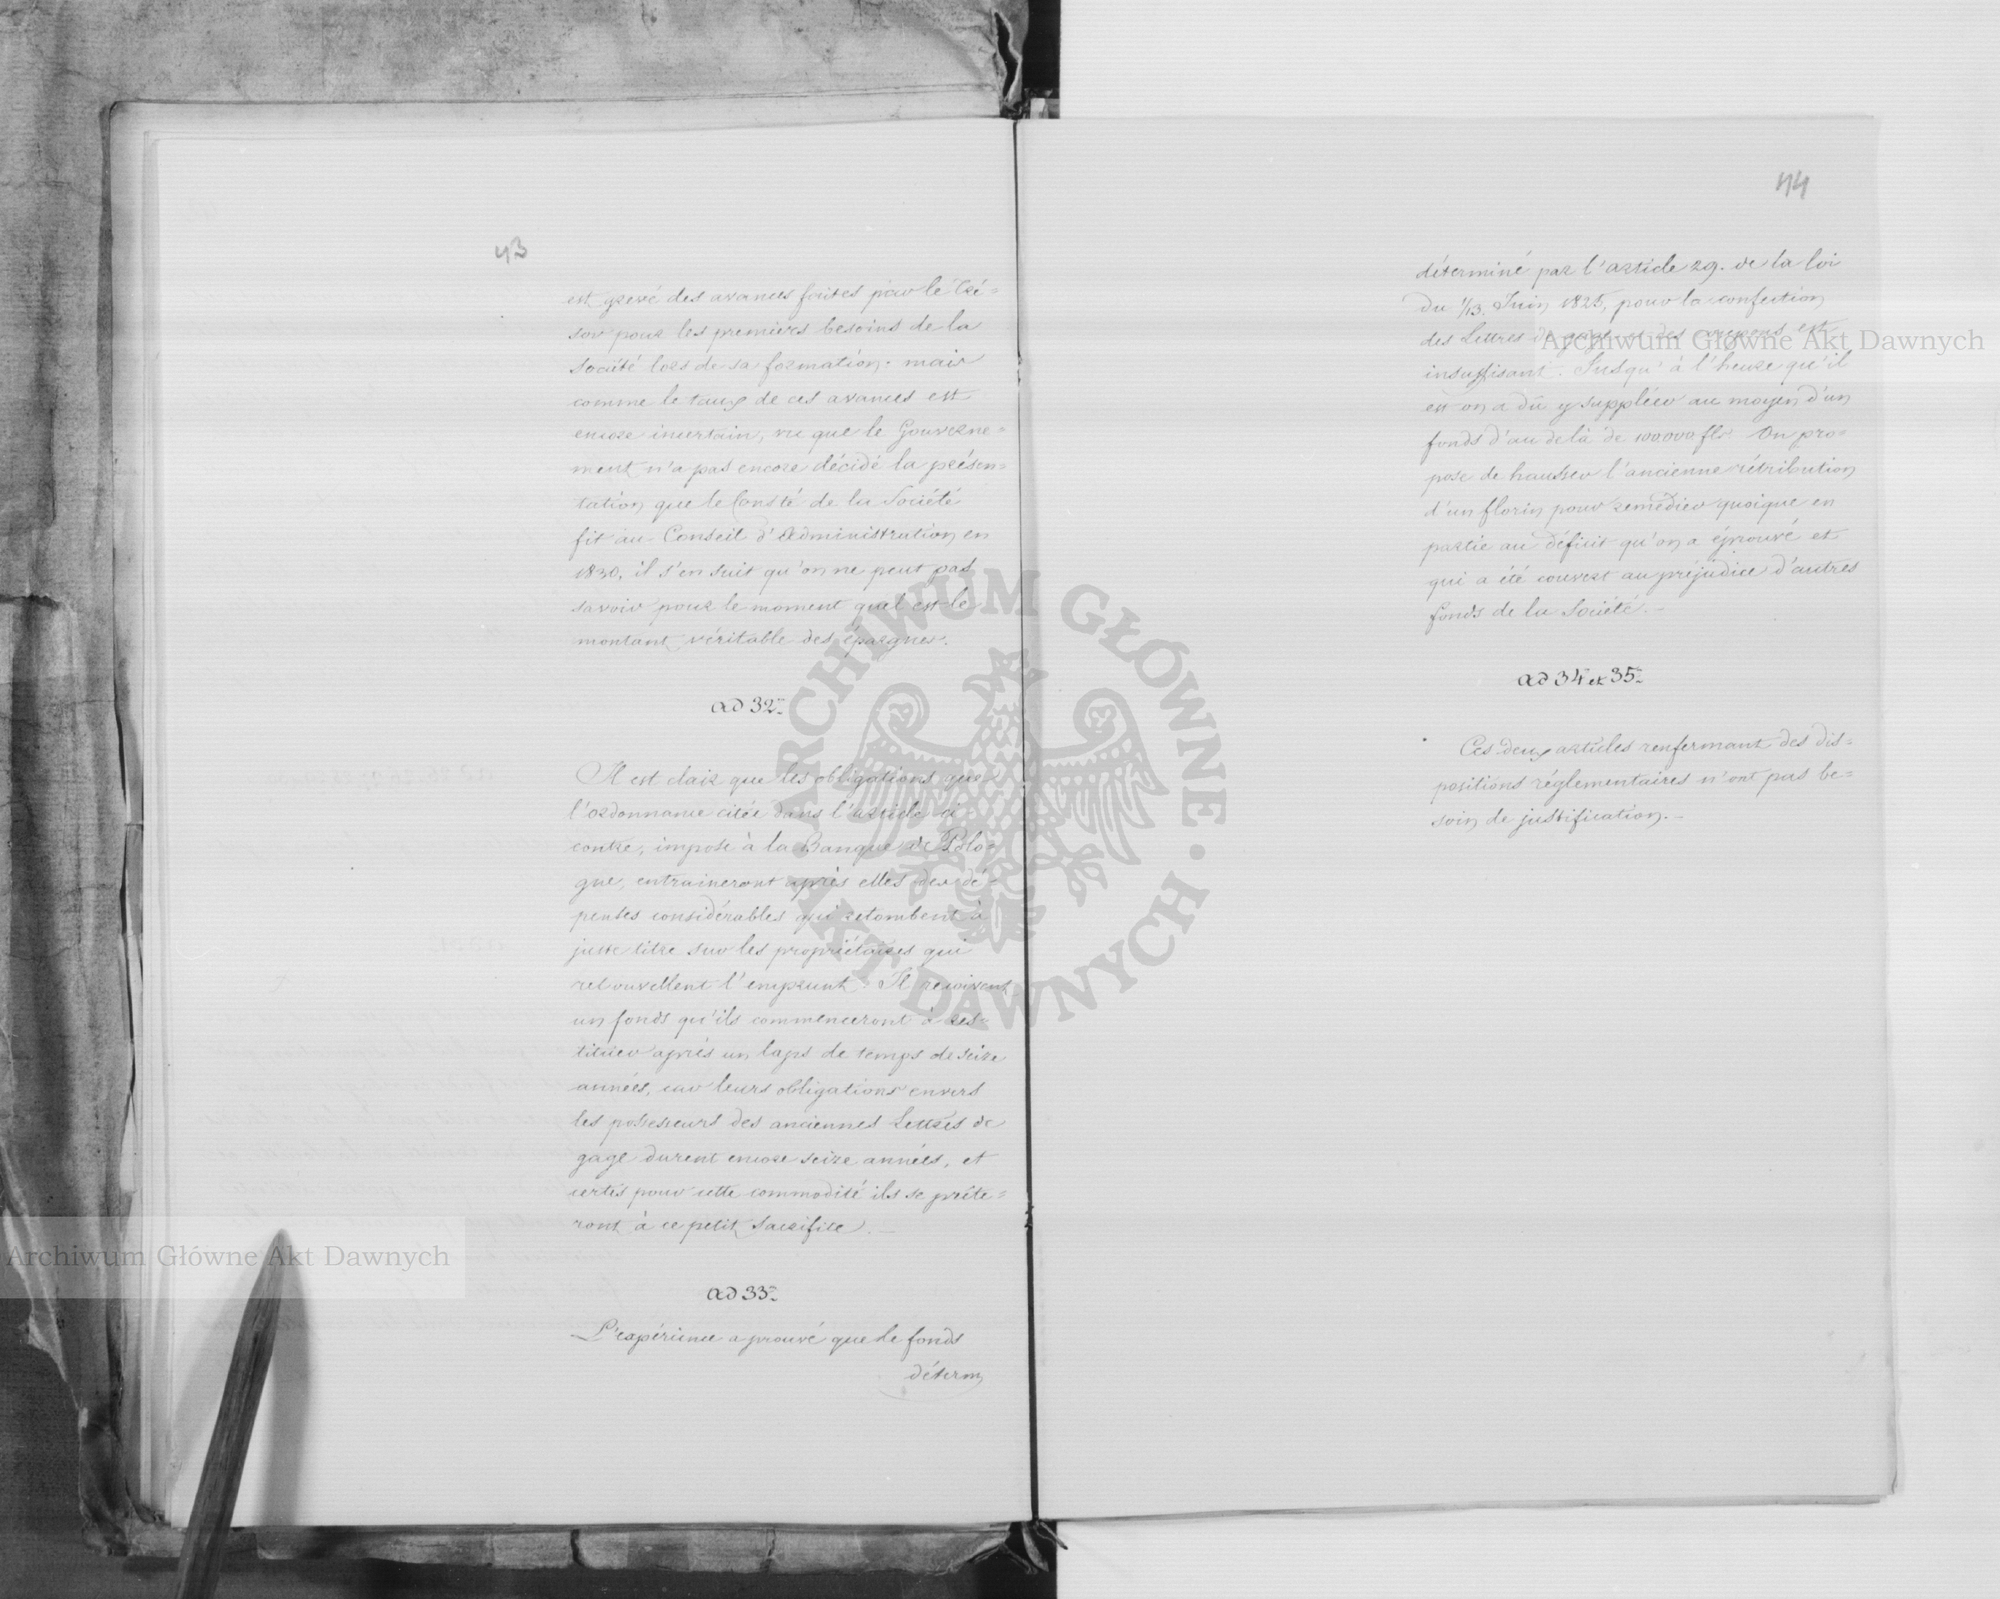 43
est grevé des avances faites par le tré=
sor pour les premiers besoins de la
société lors de sa formation. mais
comme le taux de ces avances est
encore incertain, vu que le Gouverne=
ment n'a pas encore décidé la présen=
tation que le Comité de la Société
fit au Conseil d'Administration en
1830, il s'en suit qu'on ne peut pas
savoir pour le moment quel est le
montant véritable des épargnes.
ad 32.
Il est clair que les obligations que
l'ordonnance citée dans l'article ci
contre, impose à la Banque de Polo=
gne, entraineront après elles des dé=
penses considérables qui retombent à
juste titre sur les propriétaires qui
renouvellent l'emprunt. Il reçoivent
un fonds qu'ils commenceront à res=
tituer après un laps de temps de seize
années, car leurs obligations envers
les possesseurs des anciennes Lettres de
gage durent encore seize années, et
certes pour cette commodité ils se prête=
ront à ce petit sacrifice. —
ad 33.
L'expérience a prouvé que le fonds
déterm
44
déterminé par l'article 29. de la loi
du 1/13. Juin 1825, pour la confection
des Lettres de gage et des coupons est
insuffisant. Jusqu'à l'heure qu'il
est on a dû y suppléer au moyen d'un
fonds d'au delà de 100000 fls. On pro=
pose de hausser l'ancienne rétribution
d'un florin pour remédier quoique en
partie au déficit qu'on a éprouvé et
qui a été couvert au préjudice d'autres
fonds de la Société. —
ad 34 et 35.
Ces deux articles renfermant des dis=
positions réglementaires n'ont pas be=
soin de justification. —
Archiwum Główne Akt Dawnych
Archiwum Główne Akt Dawnych
ARCHIWUM GŁÓWNE · AKT DAWNYCH ·